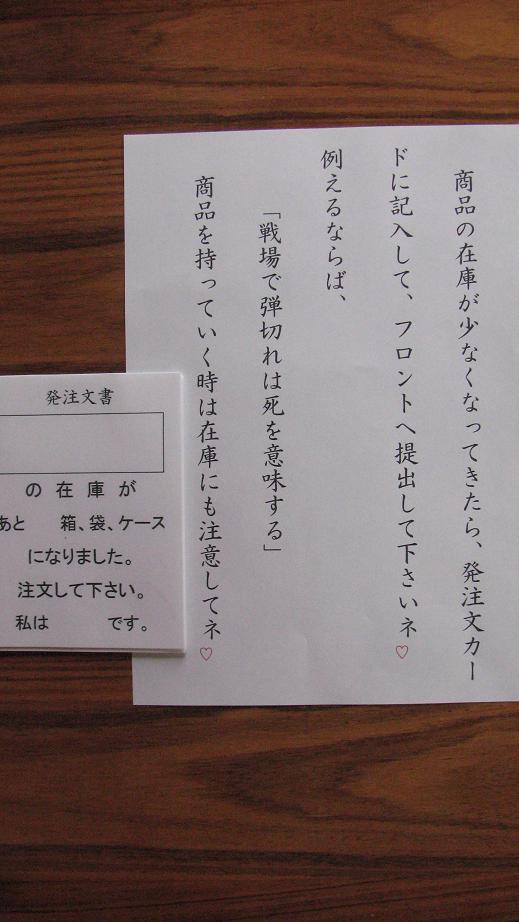 商品の在庫が少なくなってきたら、発注文カー
ドに記入して、フロントへ提出して下さいネ♡
例えるならば、
「戦場で弾切れは死を意味する」
商品を持っていく時は在庫にも注意してネ♡
発注文書
の在庫が
あと　　箱、袋、ケース
になりました。
注文して下さい。
私は　　　です。